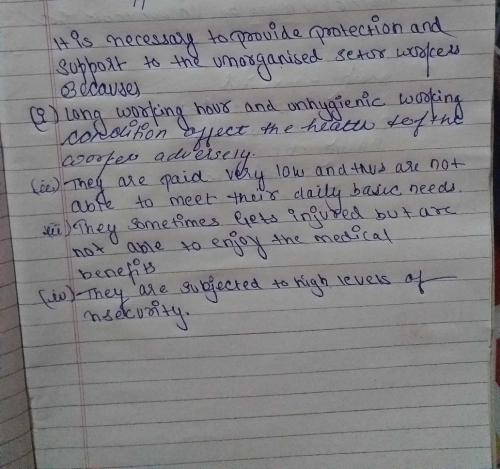 It is necessary to provide protection and
support to the unorganised setor workers
Because
(i) Long working hour and unhygienic working
condition affect the health of the
worker adversely.
(ii) They are paid very low and thus are not
able to meet their daily basic needs.
iii) They sometimes gets injured but are
not able to enjoy the medical
benefits
(iv) They are subjected to high levels of
nsecurity.